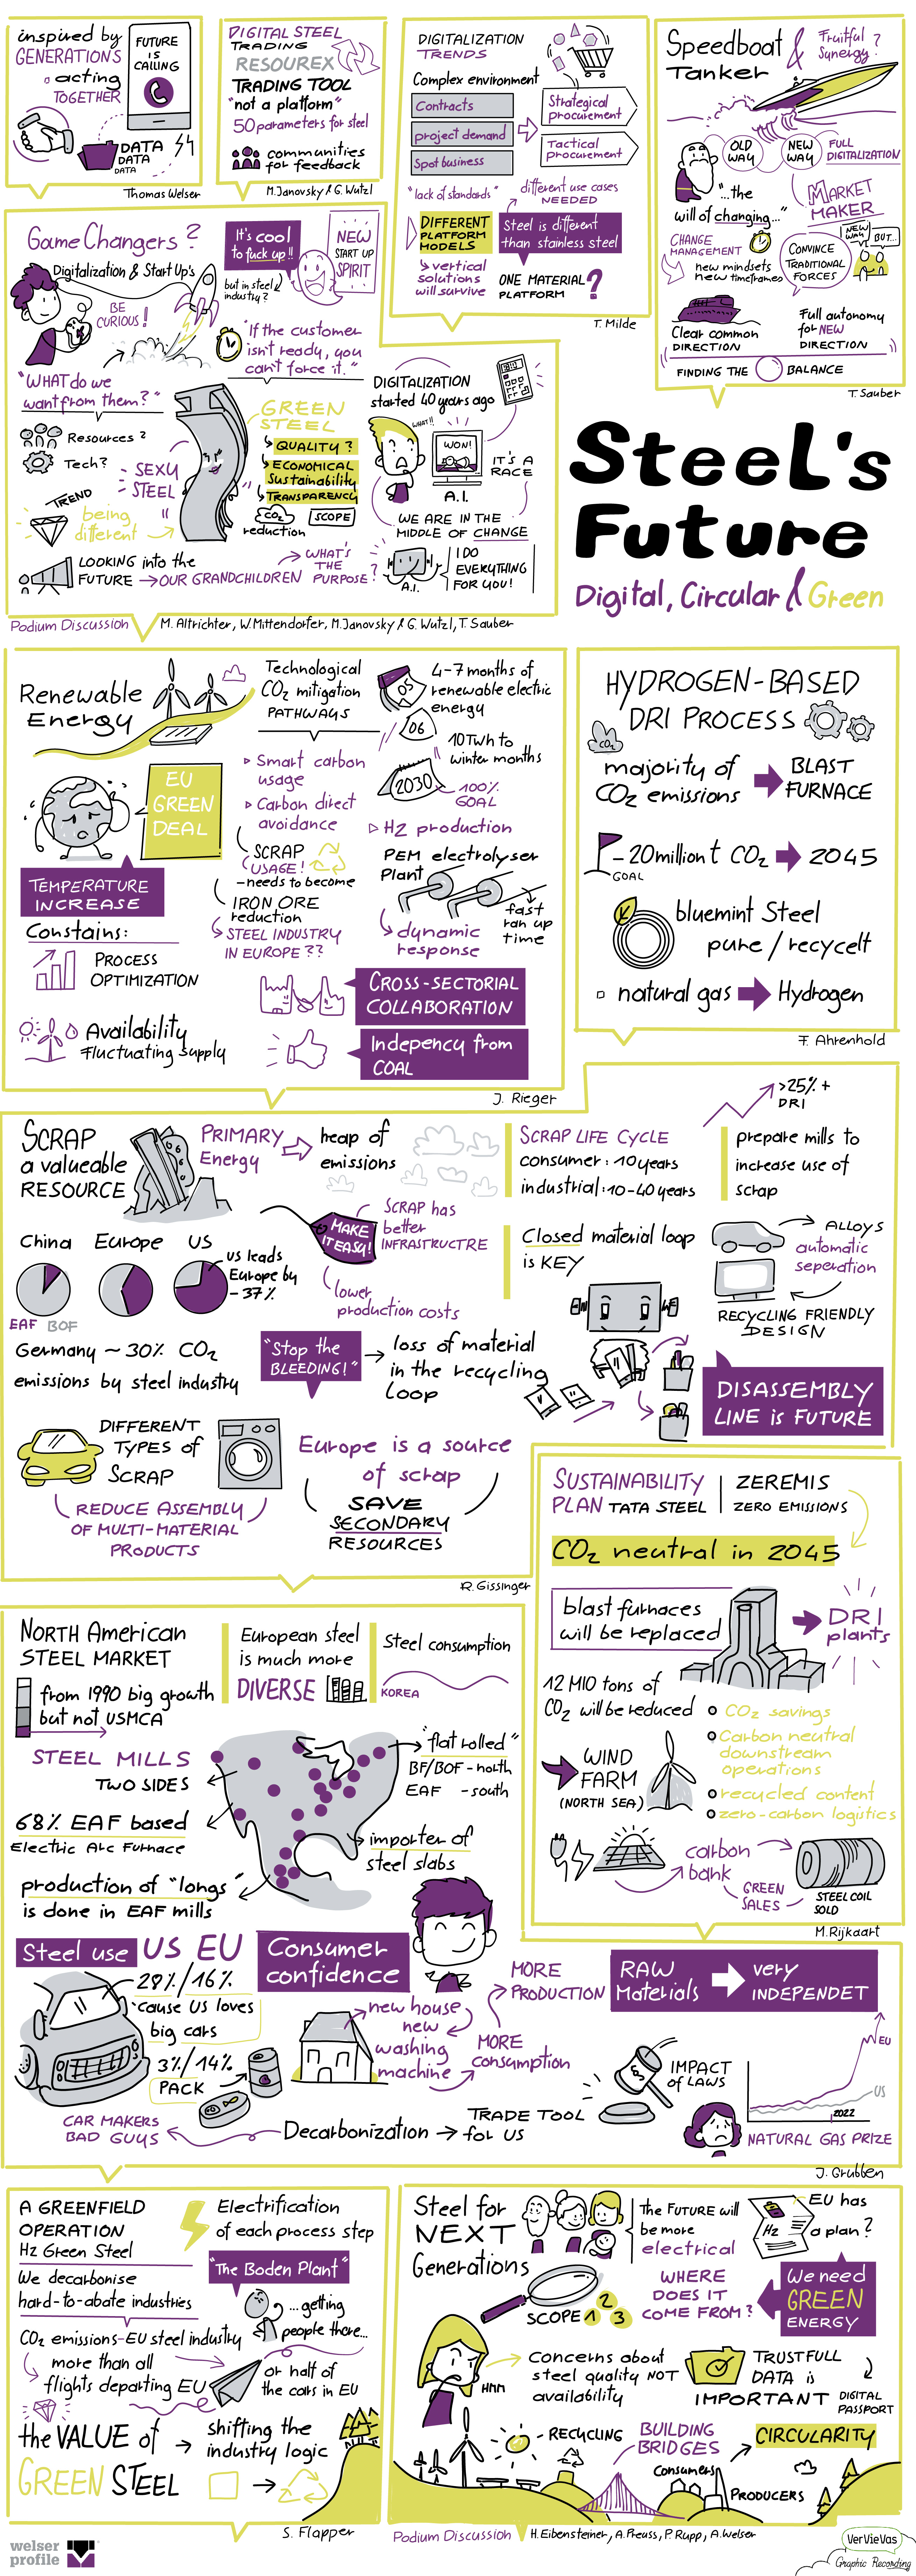 inspired by
GENERATIONS
acting
TOGETHER
FUTURE
IS
CALLING
DATA
DATA
DATA
Thomas Welser
DIGITAL STEEL
TRADING
RESOUREX
TRADING TOOL
"not a platform"
50 parameters for steel
communities
for feedback
M. Janovsky & G. Wutzl
DIGITALIZATION
TRENDS
Complex environment
Contracts
project demand
Spot business
Strategical
procurement
Tactical
procurement
"lack of standards"
different use cases
NEEDED
DIFFERENT
PLATFORM
MODELS
Steel is different
than stainless steel
vertical
solutions
will survive
ONE MATERIAL
PLATFORM ?
T. Milde
Speedboat &
Tanker
Fruitful
Synergy?
OLD
WAY
NEW
WAY
FULL
DIGITALIZATION
"...the
will of changing..."
MARKET
MAKER
CHANGE
MANAGEMENT
new mindsets
new timeframes
CONVINCE
TRADITIONAL
FORCES
NEW
WAY
BUT...
Clear common
DIRECTION
Full autonomy
for NEW
DIRECTION
FINDING THE BALANCE
T. Sauber
Game Changers?
Digitalization & Start Up's
BE
CURIOUS!
It's cool
to fuck up!!
but in steel
industry?
NEW
START UP
SPIRIT
"If the customer
isn't ready, you
can't force it."
"WHAT do we
want from them?"
Resources?
Tech?
SEXY
STEEL
TREND
being
different
GREEN
STEEL
QUALITY?
ECONOMICAL
Sustainability
TRANSPARENCY
CO2
reduction
SCOPE
LOOKING into the
FUTURE → OUR GRANDCHILDREN
WHAT'S
THE
PURPOSE?
DIGITALIZATION
started 40 years ago
WHAT!!
WON!
A.I.
IT'S A
RACE
WE ARE IN THE
MIDDLE OF CHANGE
A.I.
I DO
EVERYTHING
FOR YOU!
Podium Discussion
M. Altrichter, W. Mittendorfer, M. Janovsky & G. Wutzl, T. Sauber
Steel's
Future
Digital, Circular & Green
Renewable
Energy
EU
GREEN
DEAL
TEMPERATURE
INCREASE
Constains:
PROCESS
OPTIMIZATION
Availability
Fluctuating supply
Technological
CO2 mitigation
PATHWAYS
Smart carbon
usage
Carbon direct
avoidance
SCRAP
USAGE!
- needs to become
IRON ORE
reduction
STEEL INDUSTRY
IN EUROPE ??
05
06
2030
4-7 months of
renewable electric
energy
10 TWh to
winter months
100%
GOAL
H2 production
PEM electrolyser
Plant
fast
ran up
time
dynamic
response
CROSS-SECTORIAL
COLLABORATION
Indepency from
COAL
J. Rieger
HYDROGEN-BASED
DRI PROCESS
CO2
majority of
CO2 emissions
BLAST
FURNACE
GOAL
-20 million t CO2 2045
bluemint Steel
pure / recycelt
natural gas Hydrogen
F. Ahrenhold
SCRAP
a valueable
RESOURCE
PRIMARY
Energy
heap of
emissions
SCRAP LIFE CYCLE
consumer: 10 years
industrial: 10-40 years
>25% +
DRI
prepare mills to
increase use of
scrap
China
Europe
US
US leads
Europe by
~37%
EAF BOF
MAKE
IT EASY!
SCRAP has
better
INFRASTRUCTRE
lower
production costs
Closed material loop
is KEY
ALLOYS
automatic
seperation
RECYCLING FRIENDLY
DESIGN
Germany ~30% CO2
emissions by steel industry
"Stop the
BLEEDING!"
loss of material
in the recycling
loop
DISASSEMBLY
LINE is FUTURE
DIFFERENT
TYPES of
SCRAP
REDUCE ASSEMBLY
OF MULTI-MATERIAL
PRODUCTS
Europe is a source
of scrap
SAVE
SECONDARY
RESOURCES
R. Gissinger
SUSTAINABILITY
PLAN TATA STEEL
ZEREMIS
ZERO EMISSIONS
CO2 neutral in 2045
blast furnaces
will be replaced
DRI
plants
12 MIO tons of
CO2 will be reduced
CO2 savings
Carbon neutral
downstream
operations
recycled content
zero-carbon logistics
WIND
FARM
(NORTH SEA)
carbon
bank
GREEN
SALES
STEEL COIL
SOLD
M. Rijkaart
NORTH American
STEEL MARKET
from 1990 big growth
but not USMCA
European steel
is much more
DIVERSE
Steel consumption
KOREA
STEEL MILLS
TWO SIDES
68% EAF based
Electric Arc Furnace
production of "longs"
is done in EAF mills
"flat rolled"
BF/BOF - north
EAF - south
importer of
steel slabs
Steel use US EU
28% / 16%
'cause US loves
big cars
3% / 14%
PACK
Consumer
confidence
new house
new
washing
machine
MORE
consumption
MORE
PRODUCTION
RAW
Materials
very
INDEPENDET
IMPACT
of LAWS
EU
US
2022
NATURAL GAS PRIZE
CAR MAKERS
BAD GUYS
Decarbonization → TRADE TOOL
for US
J. Grubben
A GREENFIELD
OPERATION
H2 Green Steel
Electrification
of each process step
We decarbonise
hard-to-abate industries
"The Boden Plant"
...getting
people there...
CO2 emissions-EU steel industry
more than all
flights departing EU
or half of
the cars in EU
the VALUE of
GREEN STEEL
shifting the
industry logic
S. Flapper
Steel for
NEXT
Generations
The FUTURE will
be more
electrical
H2
EU has
a plan?
SCOPE 1 2 3
WHERE
DOES IT
COME FROM?
We need
GREEN
ENERGY
HMM
Concerns about
steel quality NOT
availability
TRUSTFULL
DATA is
IMPORTANT
DIGITAL
PASSPORT
- RECYCLING
BUILDING
BRIDGES
CIRCULARITY
Consumers
PRODUCERS
Podium Discussion
H. Eibensteiner, A. Preuss, P. Rupp, A. Welser
welser
profile
VerVieVas
Graphic Recording